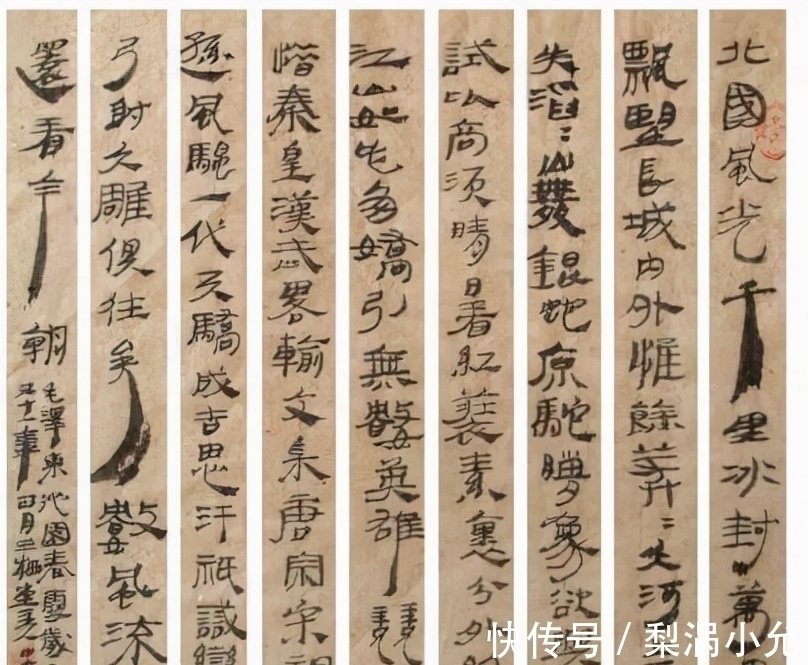 北國風光千里冰封萬
飄望長城內外惟餘莽〻大河
失滔〻山舞銀蛇原馳蠟象欲
試比高須晴日看紅裝素裹分外
江山如此多嬌引無數英雄
惜秦皇漢武畧輸文采唐宗宋祖
遜風騷一代天驕成吉思汗祇識彎
弓射大雕俱往矣數風流
還看今朝
毛澤東沁園春雪歲
四月二栖堂
快传号 / 梨涡小允